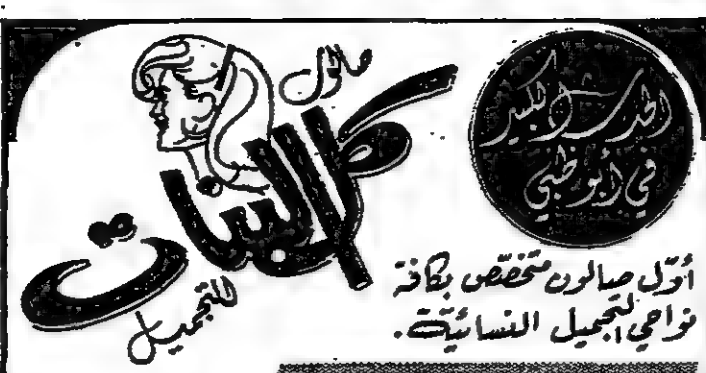 الحدث الكبير
في أبوظبي
صالون
كل البنات
للتجميل
أوّل صالون متخصّص بكافة
نواحي التجميل النسائيّة.